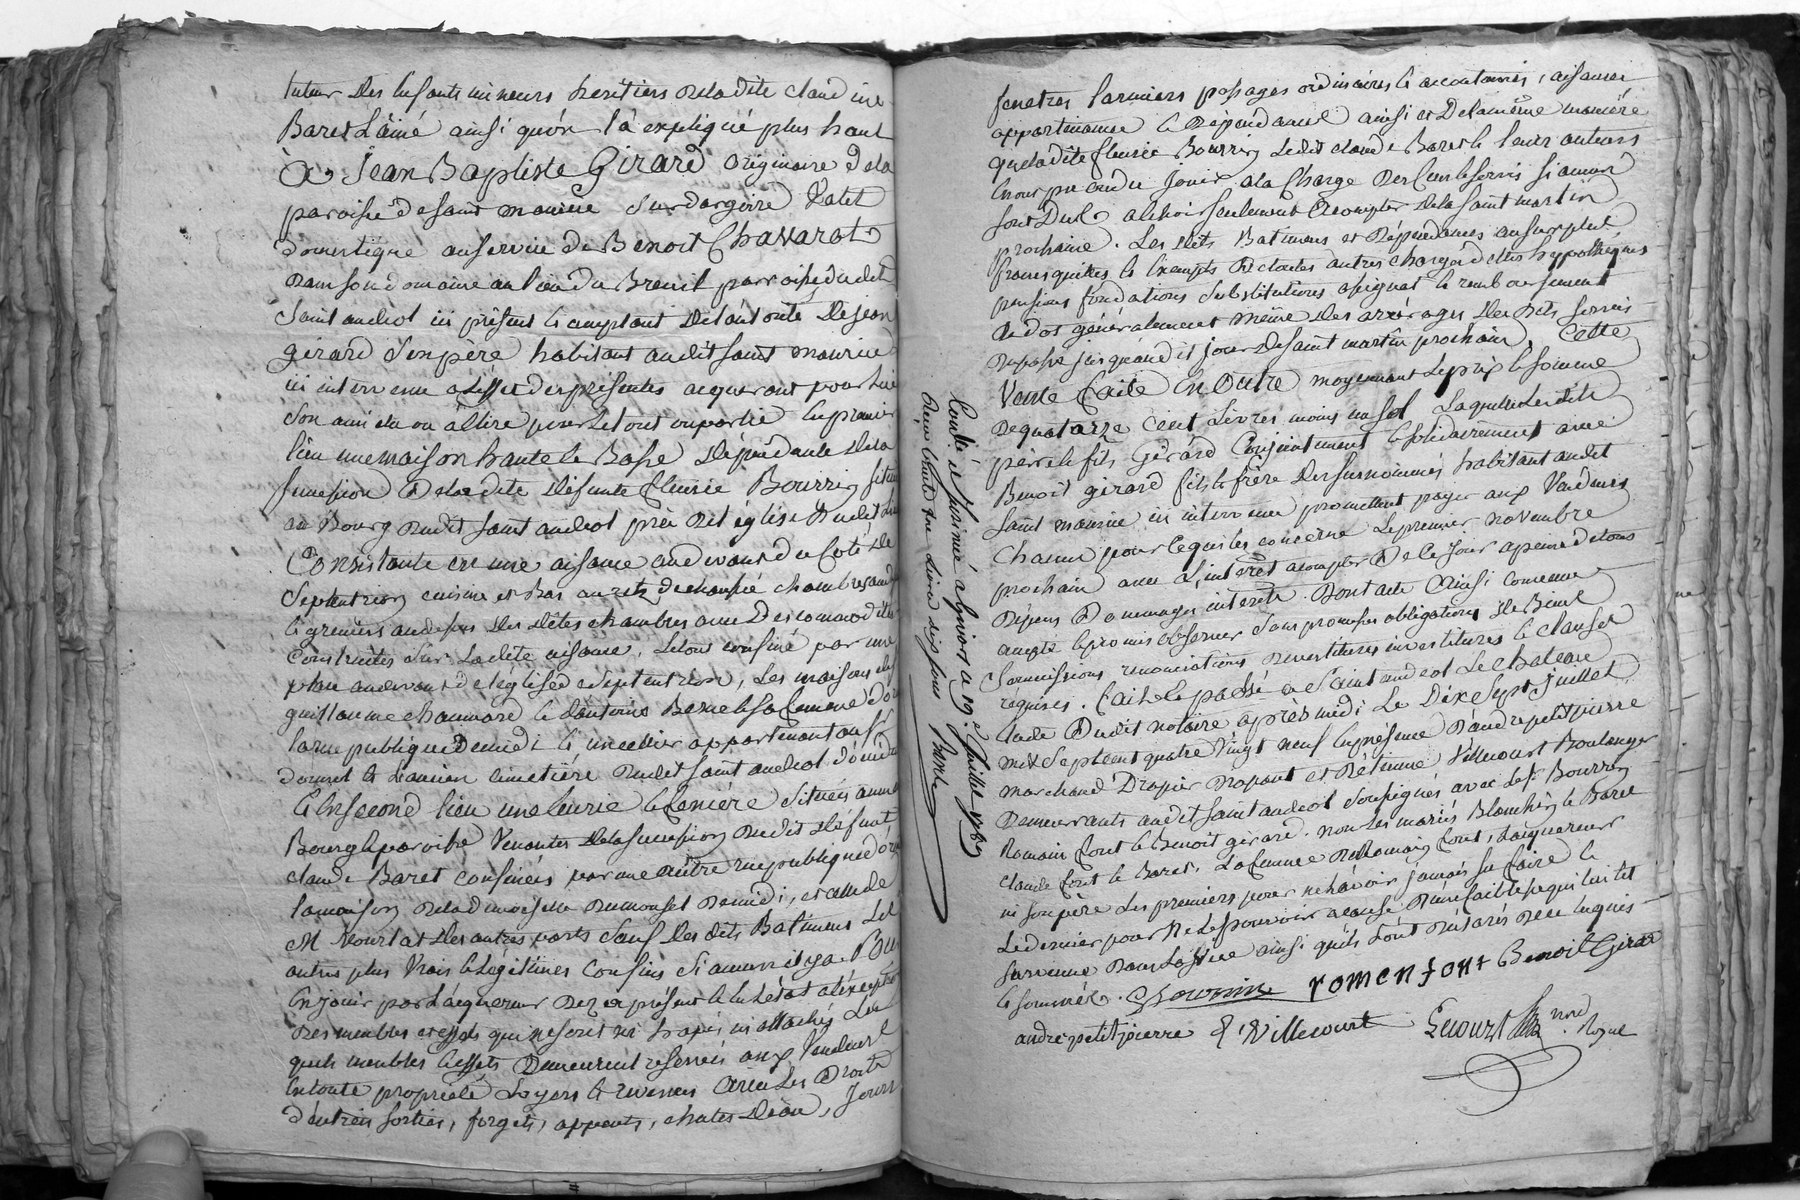 tuteur des enfants mineurs heritiers de la dite claudine
Baret L'ainé ainsi qu'on l'a expliqué plus haut
à Jean Baptiste Girard originaire de la
paroisse de saint maurice sur dargoire Valet
domestique au service de Benoit Chavarot
dans son domaine au lieu du Breuil parroisse dudit
saint andeol ici présent acceptant de l'autorité de jean
girard son père habitant audit saint maurice
ici intervenu a l'effet des présentes acquerant pour lui
son ami élu ou à élire pour le tout ou partie en premier
lieu une maison haute et Basse dépendante de la
succession de ladite défunte fleurie Bourrin située
au Bourg dudit saint andeol près de l'église dudit lieu
Consistante en une aisance au devant du coté de
septentrion cuisine et Bas au rets de chaussée chambres
et greniers audessus des dites chambres avec des commodités
construites sur la dite aisance, le tout confiné par une
place au devant de l'eglise de septentrion, les maisons de
guillaume chaumard et d'antoine
la rue publique de midi appartenant au sr
et L'ancien cimetière dudit saint andeol
et En second lieu une écurie et fenière situées au même
Bourg et paroisse Venantes de la succession dudit défunt
claude Baret confinées par une autre rue publique
la maison de la demoiselle Dumousel de midi, et celle de
M et des autres parts sauf des dits Batimens
autres plus vrais et légitimes confins si aucun il y a. Pour
En jouir par l'acquereur dez a présent et en l'état a l'exception
des meubles et effets qui ne seront ni frapés ni attachés
quels meubles et effets demeurent réservés aux Vendeurs
En toute propriété Loyers et revenus avec les droits
d'entrées sorties, forgets, appents, chutes d'eau, Jours
fenetres larmiers passages ordinaires et accoutumés, aisances
appartenances et dépendances ainsi et de la même manière
que ladite fleurie Bourrin ledit claude Baret et leurs auteurs
En ont pu ou du jouir a la charge des Cens et servis si aucun
sont dus a echoir seulement a compter de la saint martin
prochaine. Les dits Batimens et dépendances au surplus
francs quittes et exempts de toutes autres charges dettes hypothèques
pensions fondations substitutions assignat et remboursement
de dot généralement même des arrérages des dits servis
du passé jusqu'audit jour de saint martin prochain. Cette
Vente faite En Outre moyennant le prix et somme
de quatorze cent Livres moins un sol Laquelle lesdits
père et fils Girard Conjointement et solidairement avec
Benoit girard fils et frère des susnommés habitant audit
saint maurice ici intervenu promettent payer aux Vendeurs
Chacun pour ce qui les concerne le premier novembre
prochain avec L'intérêt a compter de ce jour a peine de tous
Dépens Dommages interets. Dont acte Ainsi convenu
accepté et promis observer sous promesses obligations de Biens
Soumissions renonciations devestitures investitures et clauses
requises. Fait et passé a Saint andeol Le chateau
étude dudit notaire après midi Le Dix Sept Juillet
mil sept cent quatre vingt neuf En présence d'andré petitpierre
marchand Drapier et d'étienne Villecourt Boulanger
Demeurants audit saint andeol soussignés avec les s. Bourrin
Romain font et Benoit girard. non les mariés Blanchin et Baret
claude font et Baret, La femme de Romain font, L'acquereur
ni son père les premiers pour ne l'avoir jamais su faire et
Le dernier pour ne le pouvoir a cause
survenue dans la vue ainsi qu'ils l'ont déclaré de ce enquis
et sommés.
Bourrin romen font Benoit Girar
andre petitpierre E Villecourt
nre Royal
Conllé et Insinué a Givors le 19.e Juillet 1789
Reçu